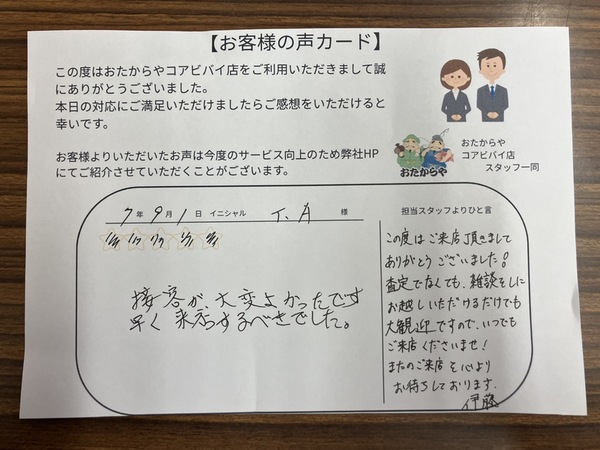 【お客様の声カード】
この度はおたからやコアビバイ店をご利用いただきまして誠
にありがとうございました。
本日の対応にご満足いただけましたらご感想をいただけると
幸いです。
お客様よりいただいたお声は今度のサービス向上のため弊社HP
にてご紹介させていただくことがございます。
おたからや
おたからや
コアビバイ店
スタッフ一同
7年9月1日 イニシャル T.A 様
接客が、大変よかったです
早く来店するべきでした。
担当スタッフよりひと言
この度はご来店頂きまして
ありがとうございました!
査定でなくても、雑談をしに
お越しいただけるだけでも
大歓迎ですので、いつでも
ご来店くださいませ!
またのご来店を心より
お待ちしております。
伊藤